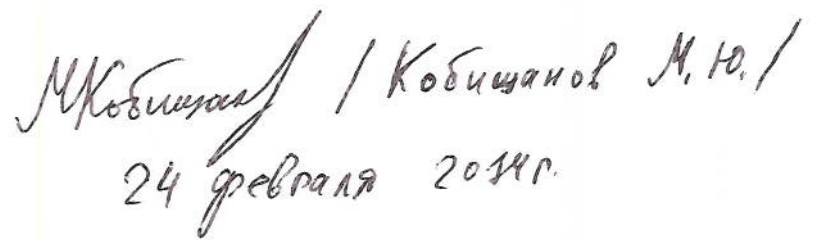 МКобищанов / Кобищанов М.Ю./
24 февраля 2014г.